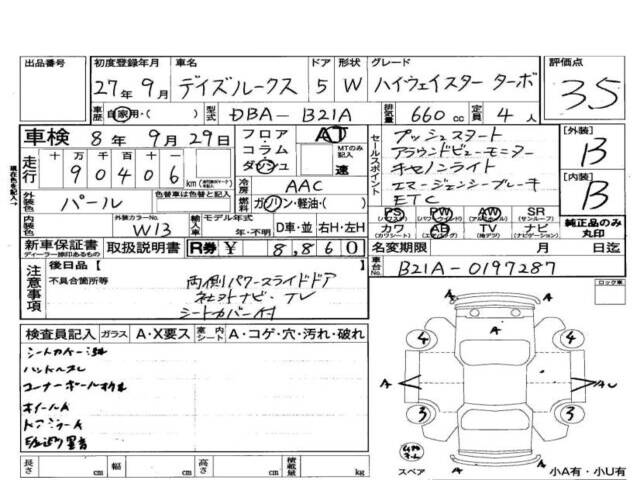 出品番号 初度登録年月 車名 ドア 形状 グレード 評価点
27年9月 デイズルークス 5 W ハイウェイスター ターボ 3.5
車歴 自家用・( ) 型式 DBA-B21A 排気量 660cc 定員 4人
車検 8年9月29日 フロア コラム ダッシュ AT MTのみ記入 速
走行 十 万 千 百 十 一
90406 km
外装色 パール 色替車は色替と記入
冷房 AAC
燃料 ガソリン・軽油・( )
内装色 外装カラーNo. W13 輸入車 モデル年式 年・不明 D車・並 右H・左H
新車保証書 取扱説明書 R券 ¥ 8,860
ディーラー捺印あるもの
セールスポイント
プッシュスタート
アラウンドビューモニター
キセノンライト
エマージェンシーブレーキ
ETC
PS PW AW SR
(パワステ) (パワーウィンド) (アルミホイール) (サンルーフ)
カワ AB TV ナビ
(カワシート) (エアバッグ) (地デジ) (ナビゲーション)
[外装] B
[内装] B
純正品のみ丸印
名変期限 月 日迄
車台No. B21A-0197287
現在色を記入→
注意事項 後日品【 】
不具合箇所等
両側パワースライドドア
社外ナビ・TV
シートカバー付
ロック車
検査員記入 ガラス A・X要ス 室内 シート A・コゲ・穴・汚れ・破れ
ハンドルスレ
ホイールA
ドアミラーA
長さ cm 幅 cm 高さ cm 積載量 kg
A
A
4 4
A A
AU
3 3
A A
A
スペア
小A有・小U有